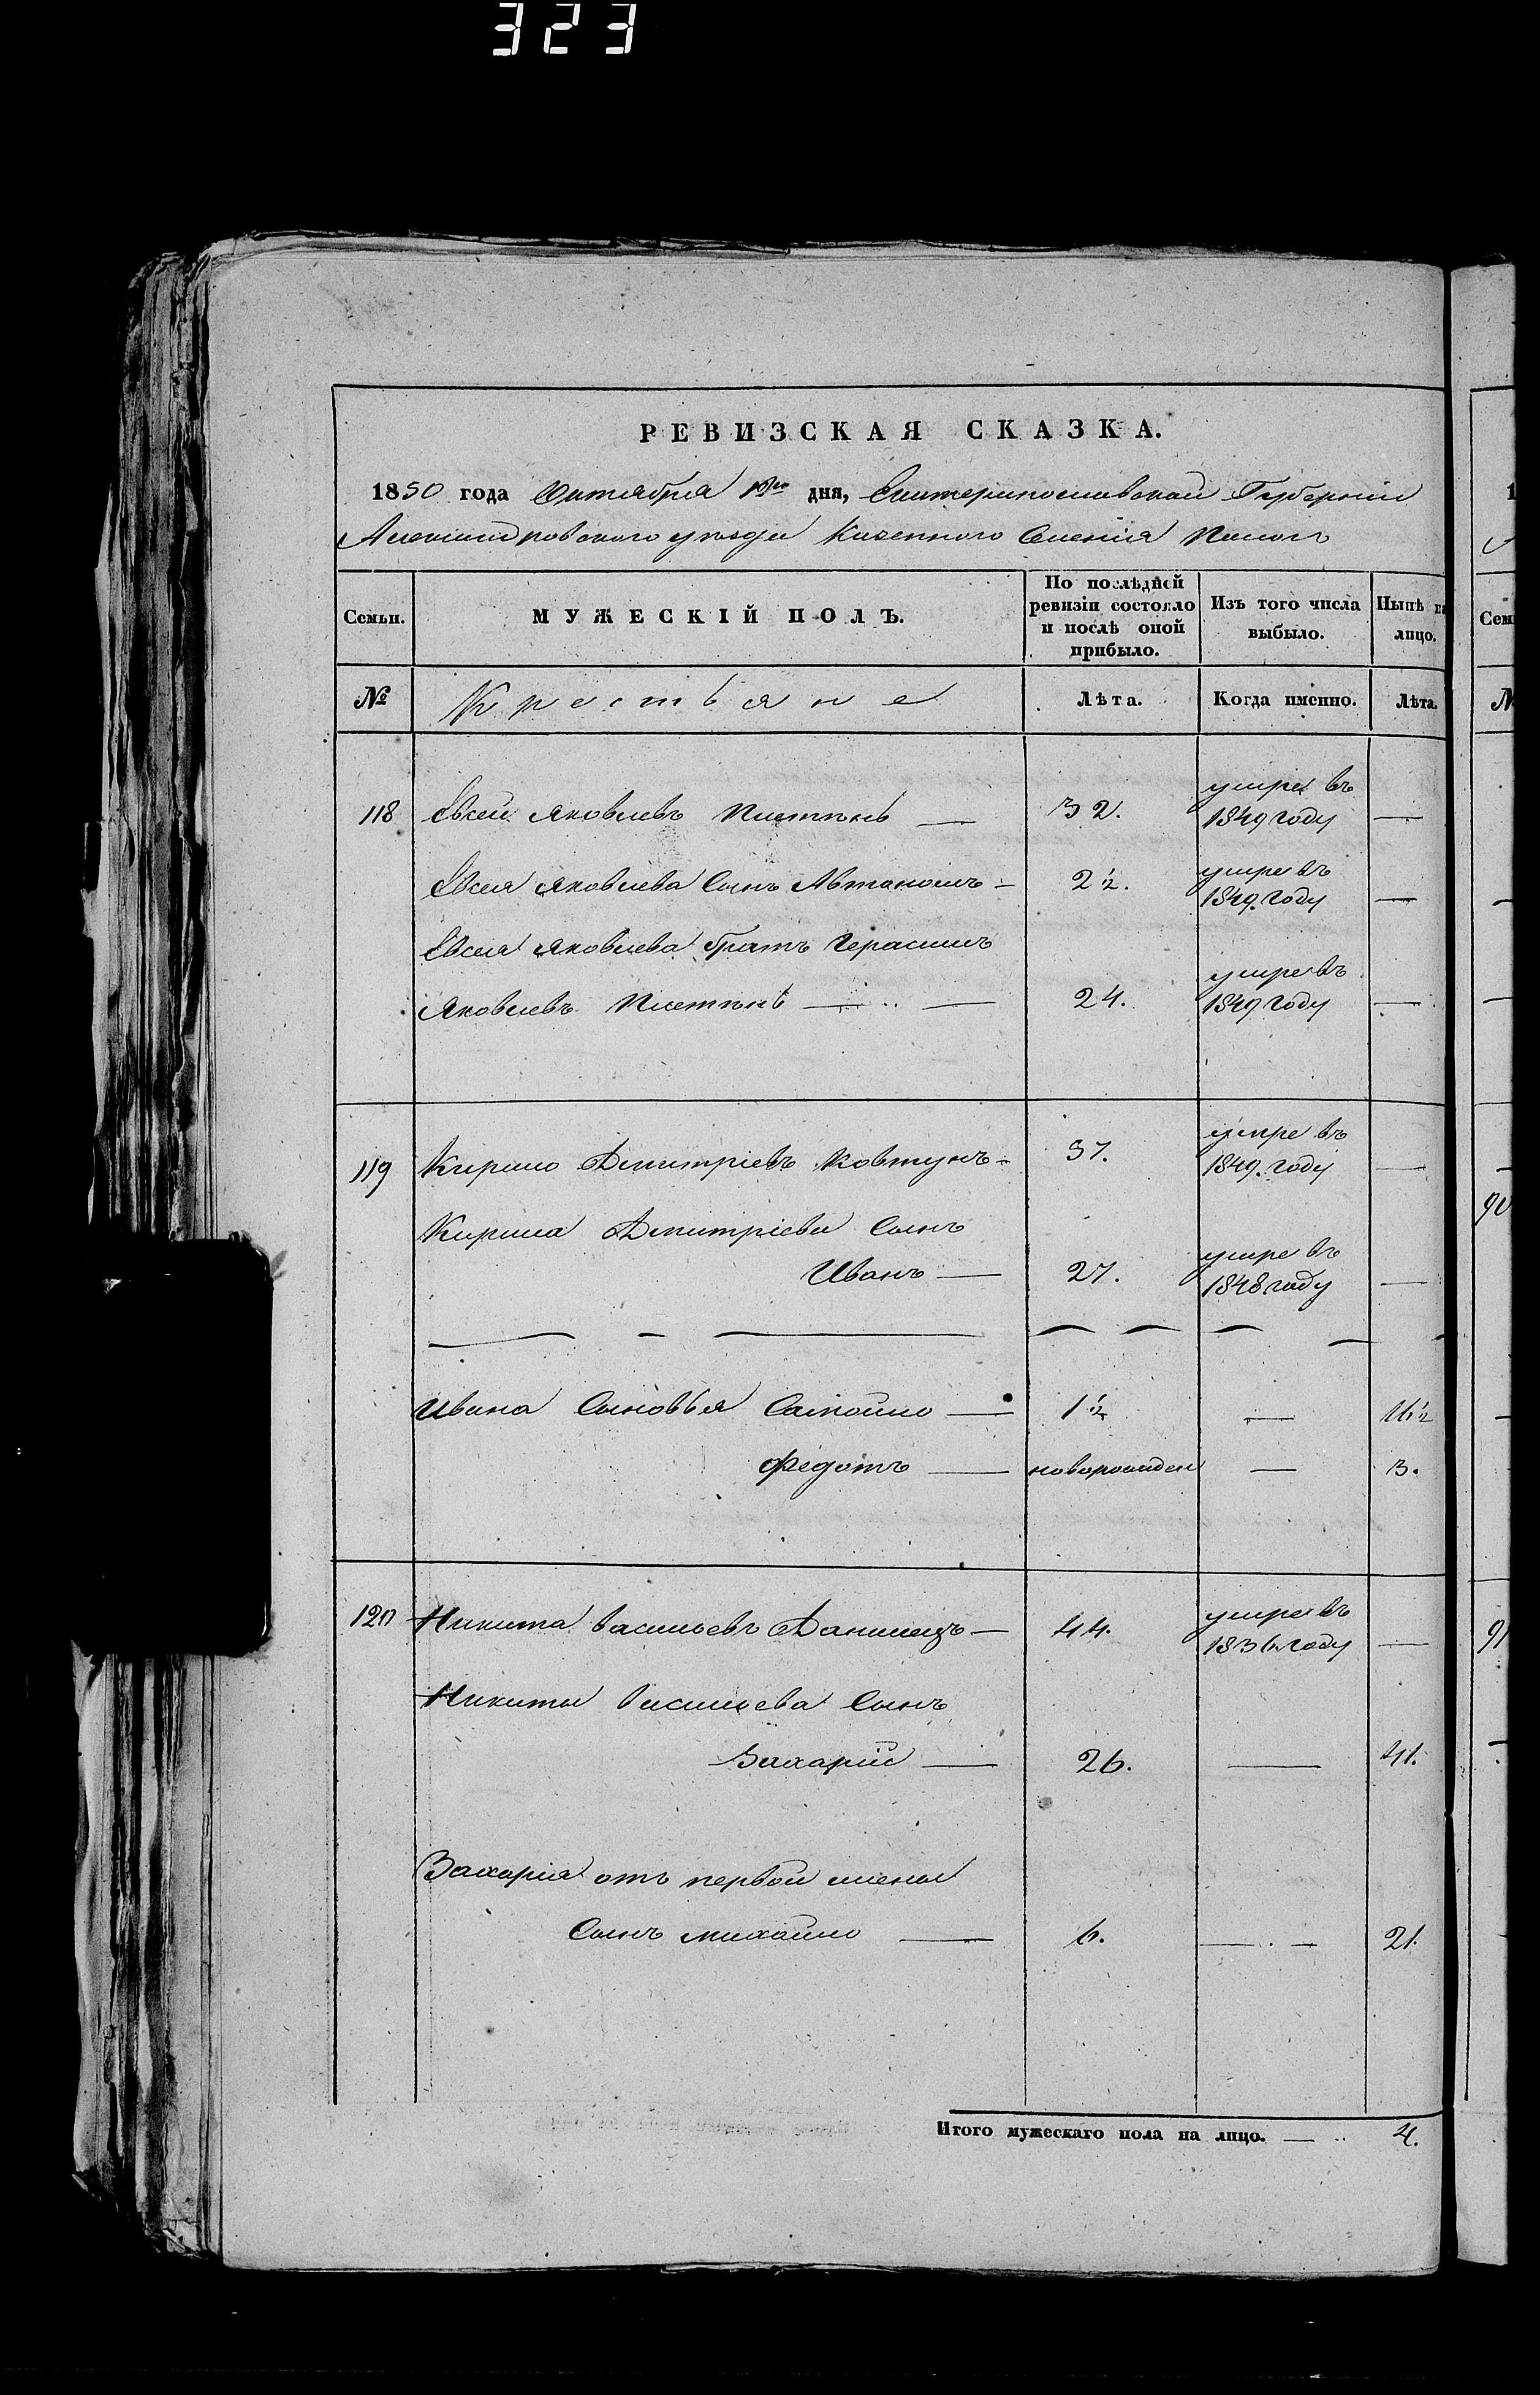 323
РЕВИЗСКАЯ СКАЗКА.
1850 года Октября дня, Екатеринославской Губерніи
Александровского уезда Казенного Селенія
Семьи. МУЖЕСКІЙ ПОЛЪ. По послѣдней ревизіи состояло и послѣ оной прибыло. Изъ того числа выбыло. Нынѣ на лицо.
№ Крестьяне Лѣта. Когда именно. Лѣта.
118 Евсей Яковлевъ 32. умре въ 1849 году —
Евсея Яковлева Сынъ Автаномъ — 2½. умре въ 1849 году —
Евсея Яковлева братъ Герасимъ
Яковлевъ — 24. умре въ 1849 году —
119 Кирило Дмитріевъ Ковтунъ — 37. умре въ 1849 году —
Кирила Дмитріева Сынъ
Иванъ — 27. умре въ 1848 году —
Ивана Сыновья Самойло — 1½ — 16½
Федотъ — новорожден — 3.
120 Никита Васильевъ Данилецъ — 44. умре въ 1836 году —
Никиты Васильева Сынъ
Захарій — 26. — 41.
Захарія отъ первой жены
Сынъ Михайло — 6. — 21.
Итого мужескаго пола на лицо. — 4.